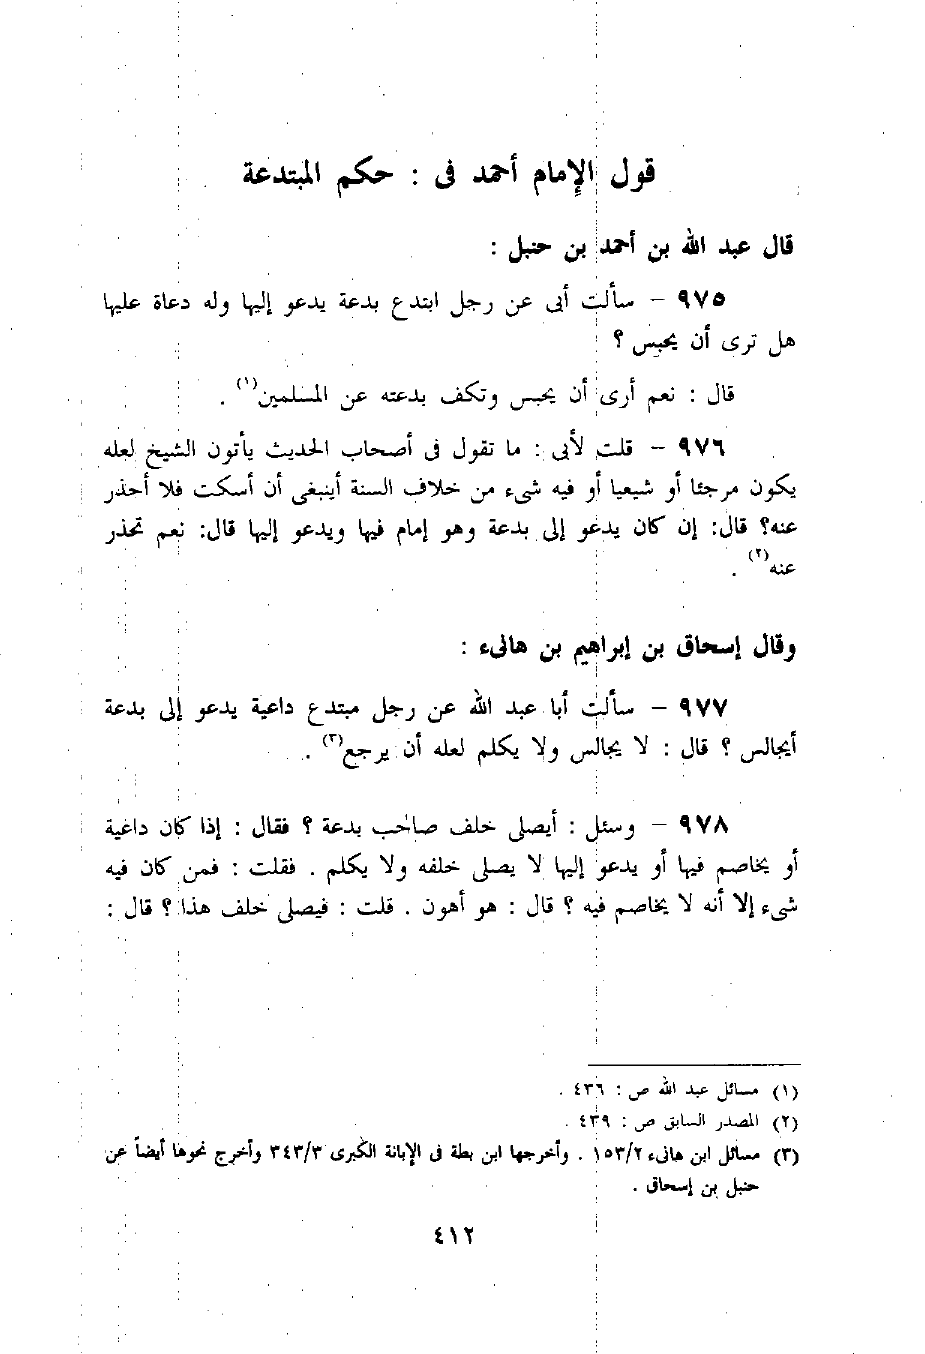 قول الإمام أحمد فى : حكم المبتدعة
قال عبد الله بن أحمد بن حنبل :
٩٧٥ – سألت أبى عن رجل ابتدع بدعة يدعو إليها وله دعاة عليها
هل ترى أن يحبس ؟
قال : نعم أرى أن يحبس وتكف بدعته عن المسلمين(١) .
٩٧٦ – قلت لأبى : ما تقول فى أصحاب الحديث يأتون الشيخ لعله
يكون مرجئا أو شيعيا أو فيه شىء من خلاف السنة أينبغى أن أسكت فلا أحذر
عنه؟ قال: إن كان يدعو إلى بدعة وهو إمام فيها ويدعو إليها قال: نعم تحذر
عنه(٢) .
وقال إسحاق بن إبراهيم بن هانىء :
٩٧٧ – سألت أبا عبد الله عن رجل مبتدع داعية يدعو إلى بدعة
أيجالس ؟ قال : لا يجالس ولا يكلم لعله أن يرجع(٣) .
٩٧٨ – وسئل : أيصلى خلف صاحب بدعة ؟ فقال : إذا كان داعية
أو يخاصم فيها أو يدعو إليها لا يصلى خلفه ولا يكلم . فقلت : فمن كان فيه
شىء إلا أنه لا يخاصم فيه ؟ قال : هو أهون . قلت : فيصلى خلف هذا ؟ قال :
(١) مسائل عبد الله ص : ٤٣٦ .
(٢) المصدر السابق ص : ٤٣٩ .
(٣) مسائل ابن هانىء ١٥٣/٢ . وأخرجها ابن بطة فى الإبانة الكبرى ٣٤٣/٣ وأخرج نحوها أيضاً عن
حنبل بن إسحاق .
٤١٢